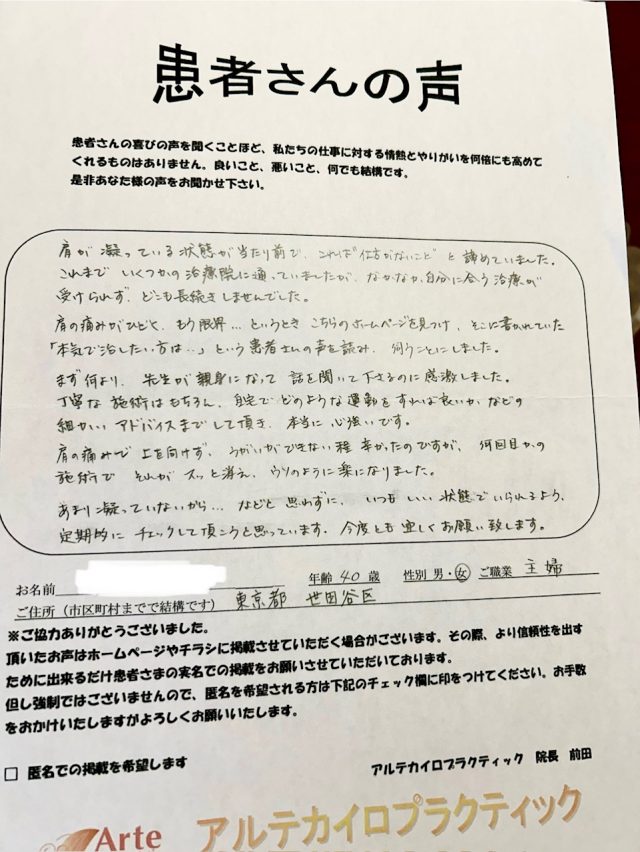 患者さんの声
患者さんの喜びの声を聞くことほど、私たちの仕事に対する情熱とやりがいを何倍にも高めて
くれるものはありません。良いこと、悪いこと、何でも結構です。
是非あなた様の声をお聞かせ下さい。
肩が凝っている状態が当たり前で、これは"仕方がないこと"と諦めていました。
これまでいくつかの治療院に通っていましたが、なかなか自分に合う治療が
受けられず、どこも長続きしませんでした。
肩の痛みがひどく、もう限界…というときこちらのホームページを見つけ、そこに書かれていた
「本気で治したい方は…」という患者さんの声を読み、伺うことにしました。
まず何より、先生が親身になって話を聞いて下さるのに感激しました。
丁寧な施術はもちろん、自宅でどのような運動をすれば良いかなどの
細かいアドバイスまでして頂き、本当に心強いです。
肩の痛みで上を向けず、うがいができない程辛かったのですが、何回目かの
施術でそれがスッと消え、ウソのように楽になりました。
あまり凝っていないから…などと思わずに、いつもいい状態でいられるよう、
定期的にチェックして頂こうと思っています。今度とも宜しくお願い致します。
お名前 年齢 40 歳 性別 男・女 ご職業 主婦
ご住所（市区町村までで結構です） 東京都 世田谷区
※ご協力ありがとうございました。
頂いたお声はホームページやチラシに掲載させていただく場合がございます。その際、より信頼性を出す
ために出来るだけ患者さまの実名での掲載をお願いさせていただいております。
但し強制ではございませんので、匿名を希望される方は下記のチェック欄に印をつけてください。お手数
をおかけいたしますがよろしくお願いいたします。
□ 匿名での掲載を希望します
アルテカイロプラクティック 院長 前田
Arte アルテカイロプラクティック